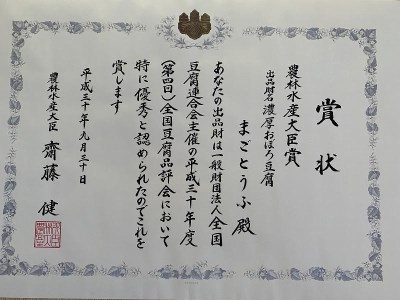 賞状
農林水産大臣賞
出品財名 濃厚おぼろ豆腐
まごとうふ殿
あなたの出品財は一般財団法人全国
豆腐連合会主催の平成三十年度
(第四回)全国豆腐品評会において
特に優秀と認められたのでこれを
賞します
平成三十年九月三十日
農林水産大臣 齋藤健